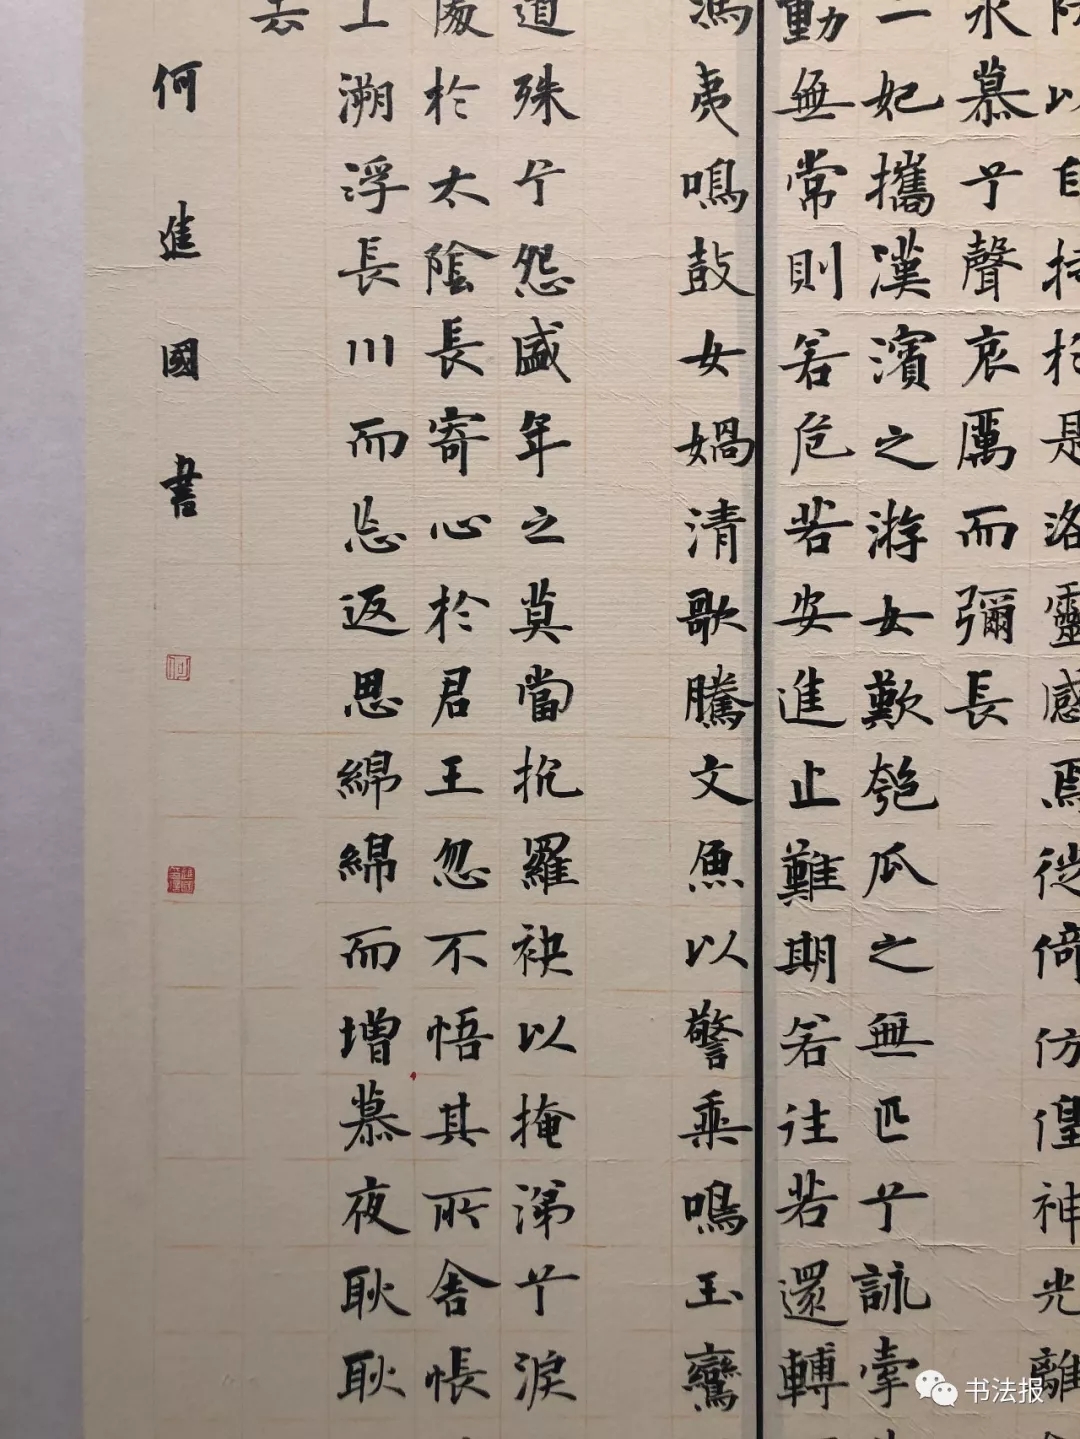 以自持於是洛靈感焉徙倚仿偟神光離
永慕兮聲哀厲而彌長
二妃攜漢濱之游女歎匏瓜之無匹兮詠牽
動無常則若危若安進止難期若往若還轉
馮夷鳴鼓女媧清歌騰文魚以警乘鳴玉鸞
道殊兮怨盛年之莫當抗羅袂以掩涕兮淚
處於太陰長寄心於君王忽不悟其所舍悵
上溯浮長川而忘返思綿綿而增慕夜耿耿
何進國書
书法报